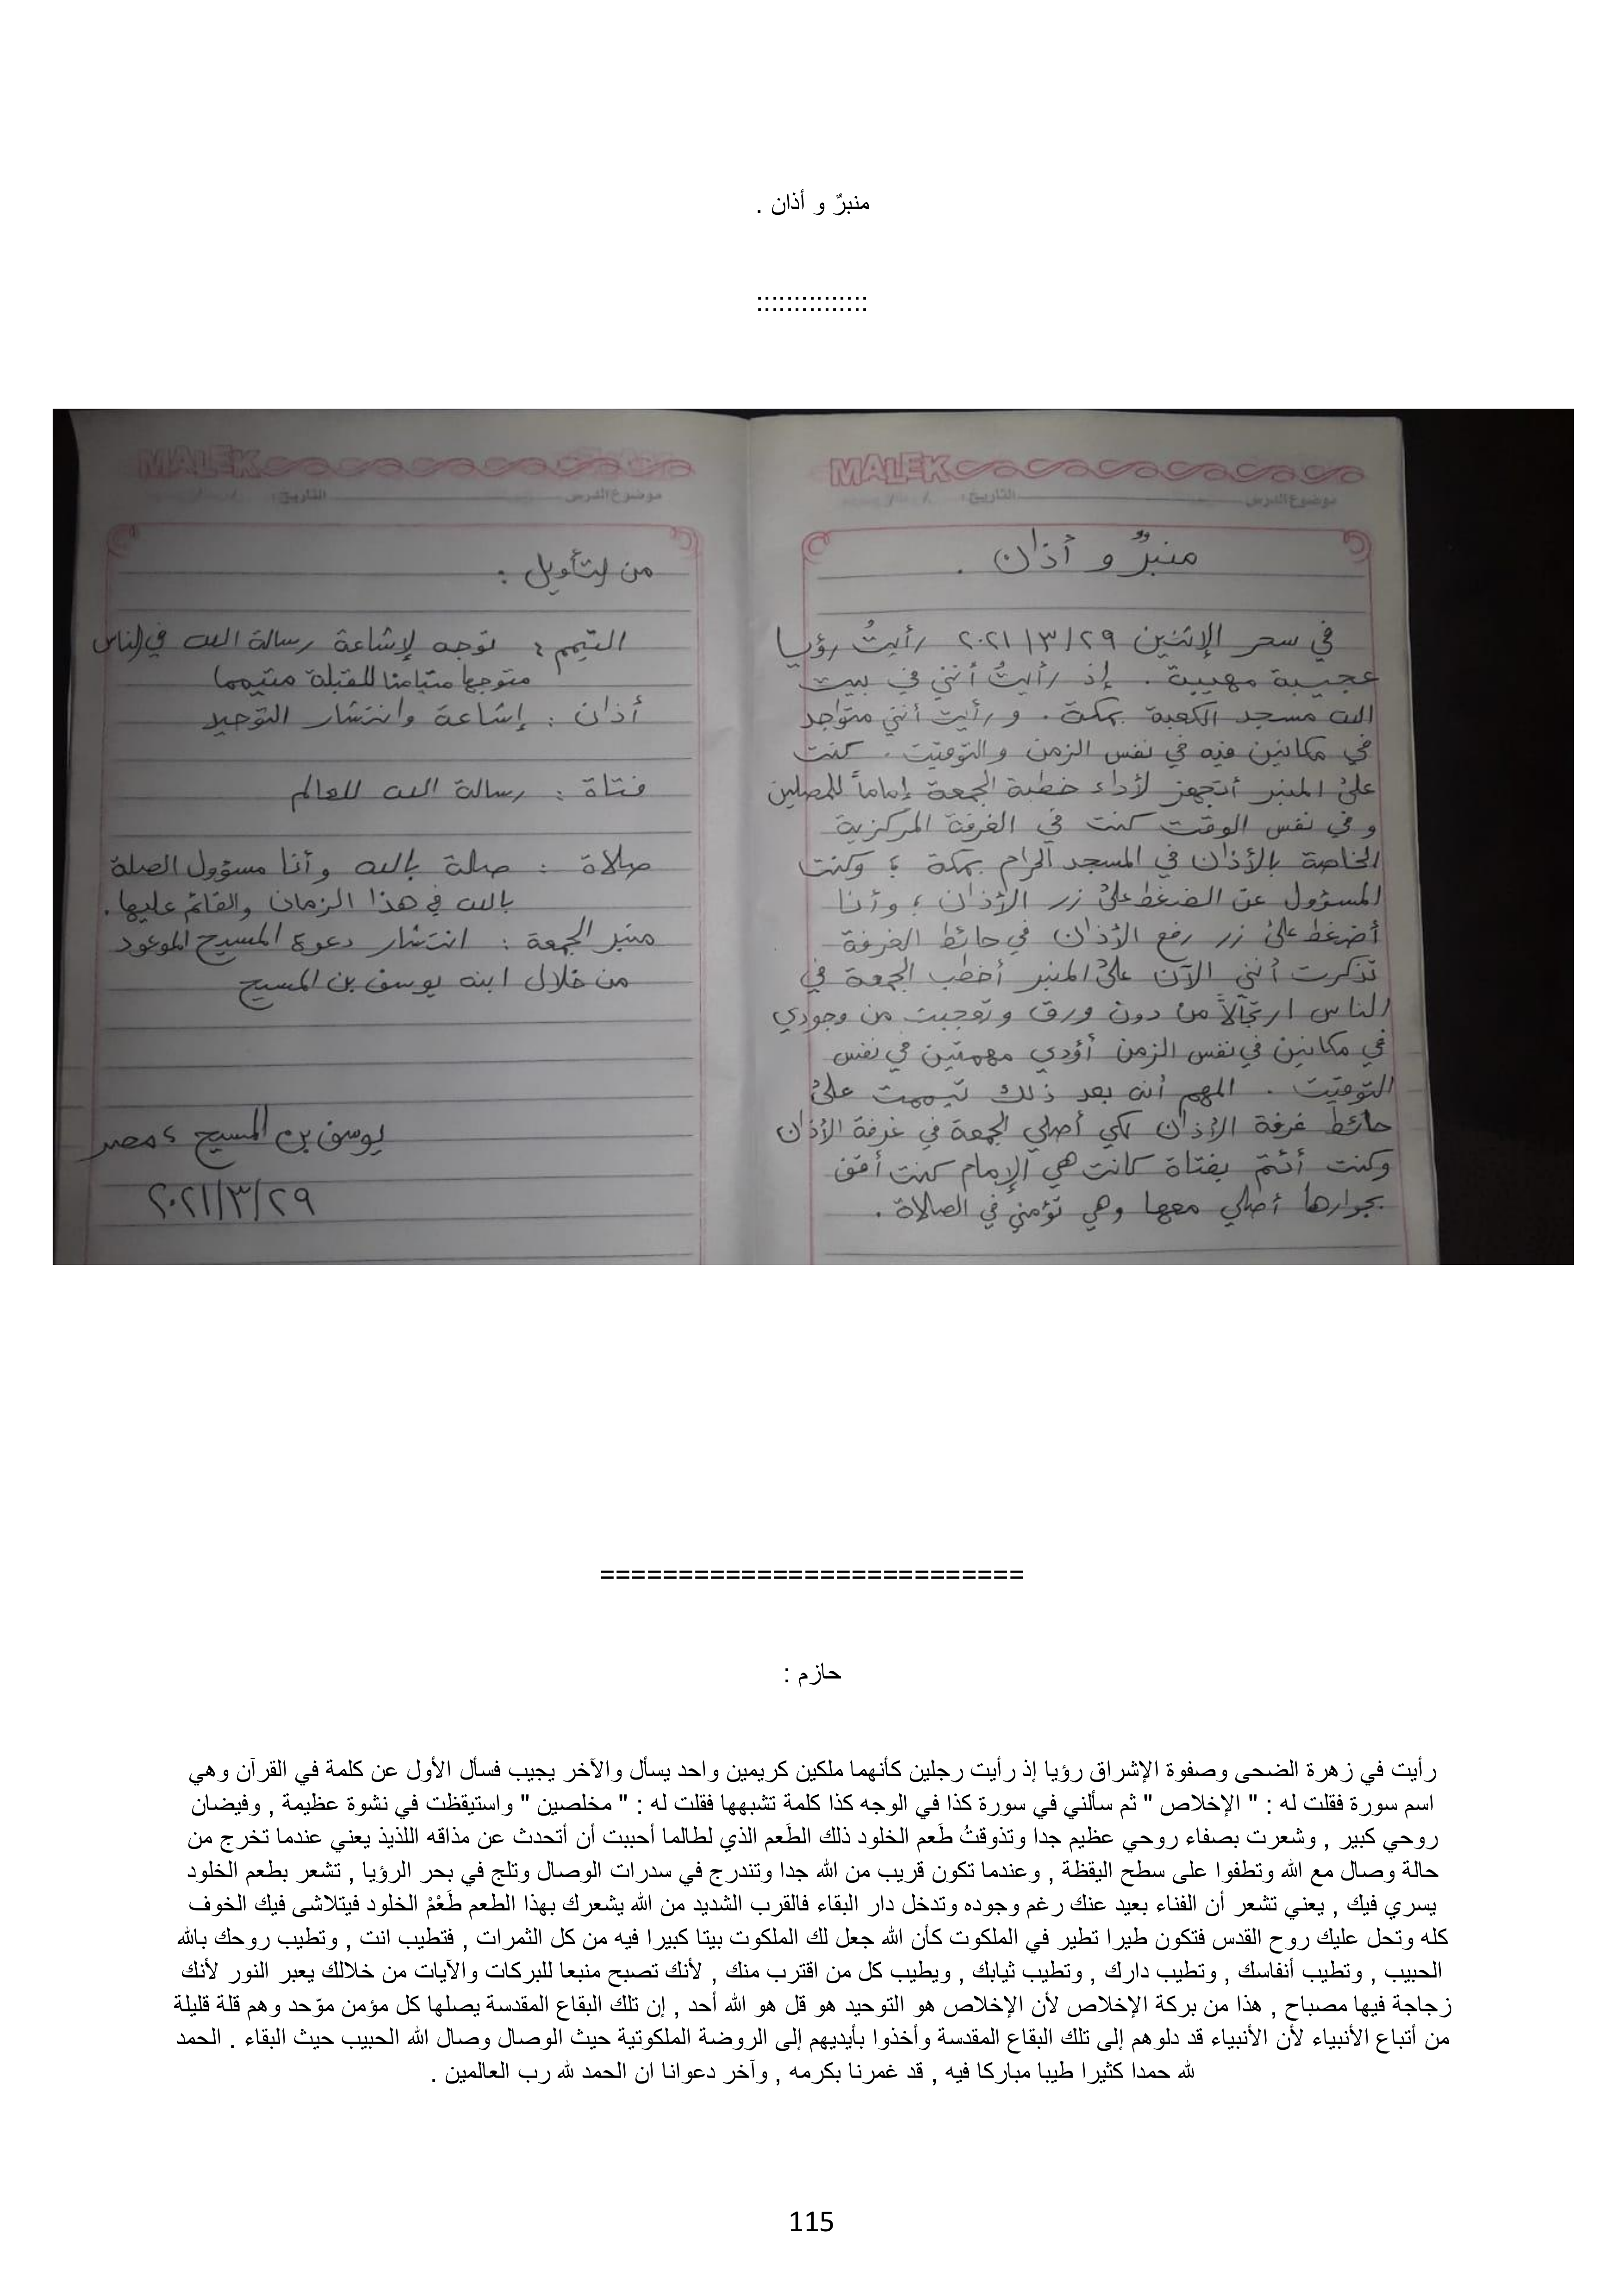 منبرٌ و أذان .
:::::::::::::::
MALEK
موضوع الدرس التاريخ :
منبرٌ و أذان .
في سحر الإثنين ٢٩/٣/٢٠٢١ رأيتُ رؤيا
عجيبة مهيبة . إذ رأيتُ أنني في بيت
الله مسجد الكعبة بمكة . و رأيت أنني متواجد
في مكانين فيه في نفس الزمن والتوقيت . كنت
على المنبر أتجهز لأداء خطبة الجمعة إماماً للمصلين
و في نفس الوقت كنت في الغرفة المركزية
الخاصة بالأذان في المسجد الحرام بمكة ؛ وكنت
المسؤول عن الضغط على زر الأذان ؛ وأنا
أضغط على زر رفع الأذان في حائط الغرفة
تذكرت أنني الآن على المنبر أخطب الجمعة في
الناس ارتجالاً من دون ورق وتعجبت من وجودي
في مكانين في نفس الزمن أؤدي مهمتين في نفس
التوقيت . المهم أنه بعد ذلك تيممت على
حائط غرفة الأذان لكي أصلي الجمعة في غرفة الأذان
وكنت أئتم بفتاة كانت هي الإمام كنت أقف
بجوارها أصلي معها وهي تؤمني في الصلاة .
MALEK
موضوع الدرس التاريخ :
من التأويل :
التيمم : توجه لإشاعة رسالة الله في الناس
متوجها متيامنا للقبلة متيمما
أذان : إشاعة وانتشار التوحيد
فتاة : رسالة الله للعالم
صلاة : صلة بالله وأنا مسؤول الصلة
بالله في هذا الزمان والقائم عليها .
منبر الجمعة : انتشار دعوة المسيح الموعود
من خلال ابنه يوسف بن المسيح
يوسف بن المسيح ، مصر
٢٩/٣/٢٠٢١
===========================
حازم :
رأيت في زهرة الضحى وصفوة الإشراق رؤيا إذ رأيت رجلين كأنهما ملكين كريمين واحد يسأل والآخر يجيب فسأل الأول عن كلمة في القرآن وهي
اسم سورة فقلت له : " الإخلاص " ثم سألني في سورة كذا في الوجه كذا كلمة تشبهها فقلت له : " مخلصين " واستيقظت في نشوة عظيمة , وفيضان
روحي كبير , وشعرت بصفاء روحي عظيم جدا وتذوقتُ طَعم الخلود ذلك الطَعم الذي لطالما أحببت أن أتحدث عن مذاقه اللذيذ يعني عندما تخرج من
حالة وصال مع الله وتطفوا على سطح اليقظة , وعندما تكون قريب من الله جدا وتندرج في سدرات الوصال وتلج في بحر الرؤيا , تشعر بطعم الخلود
يسري فيك , يعني تشعر أن الفناء بعيد عنك رغم وجوده وتدخل دار البقاء فالقرب الشديد من الله يشعرك بهذا الطعم طَعْمْ الخلود فيتلاشى فيك الخوف
كله وتحل عليك روح القدس فتكون طيرا تطير في الملكوت كأن الله جعل لك الملكوت بيتا كبيرا فيه من كل الثمرات , فتطيب انت , وتطيب روحك بالله
الحبيب , وتطيب أنفاسك , وتطيب دارك , وتطيب ثيابك , ويطيب كل من اقترب منك , لأنك تصبح منبعا للبركات والآيات من خلالك يعبر النور لأنك
زجاجة فيها مصباح , هذا من بركة الإخلاص لأن الإخلاص هو التوحيد هو قل هو الله أحد , إن تلك البقاع المقدسة يصلها كل مؤمن موّحد وهم قلة قليلة
من أتباع الأنبياء لأن الأنبياء قد دلوهم إلى تلك البقاع المقدسة وأخذوا بأيديهم إلى الروضة الملكوتية حيث الوصال وصال الله الحبيب حيث البقاء . الحمد
لله حمدا كثيرا طيبا مباركا فيه , قد غمرنا بكرمه , وآخر دعوانا ان الحمد لله رب العالمين .
115